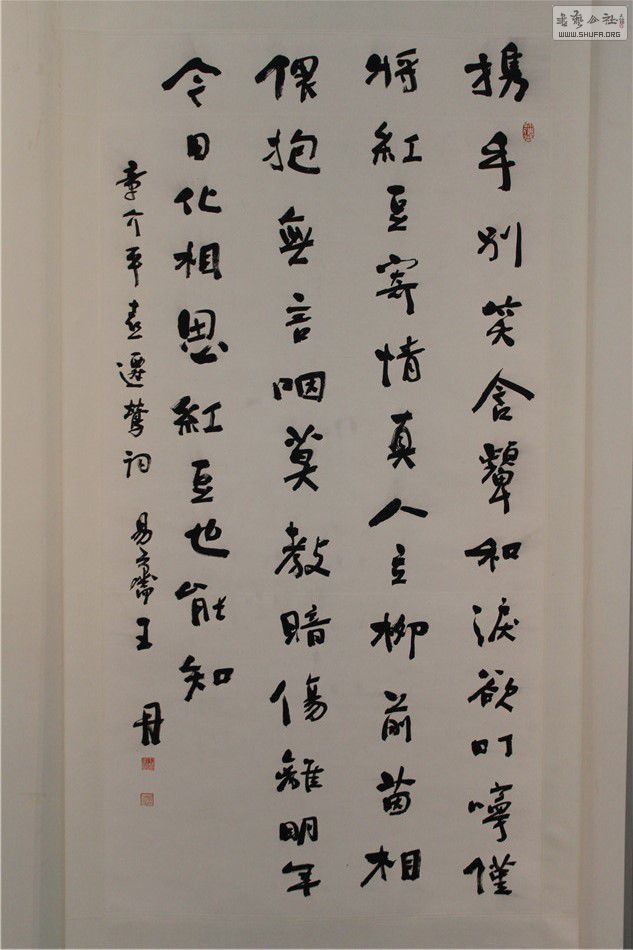 携手別笑含顰和淚欲叮嚀僅
將紅豆寄情真人立柳前苗相
偎抱無言咽莫教暗傷離明年
今日化相思紅豆也能知
章介平喜遷鶯詞 易齋王丹
書藝公社
WWW.SHUFA.ORG